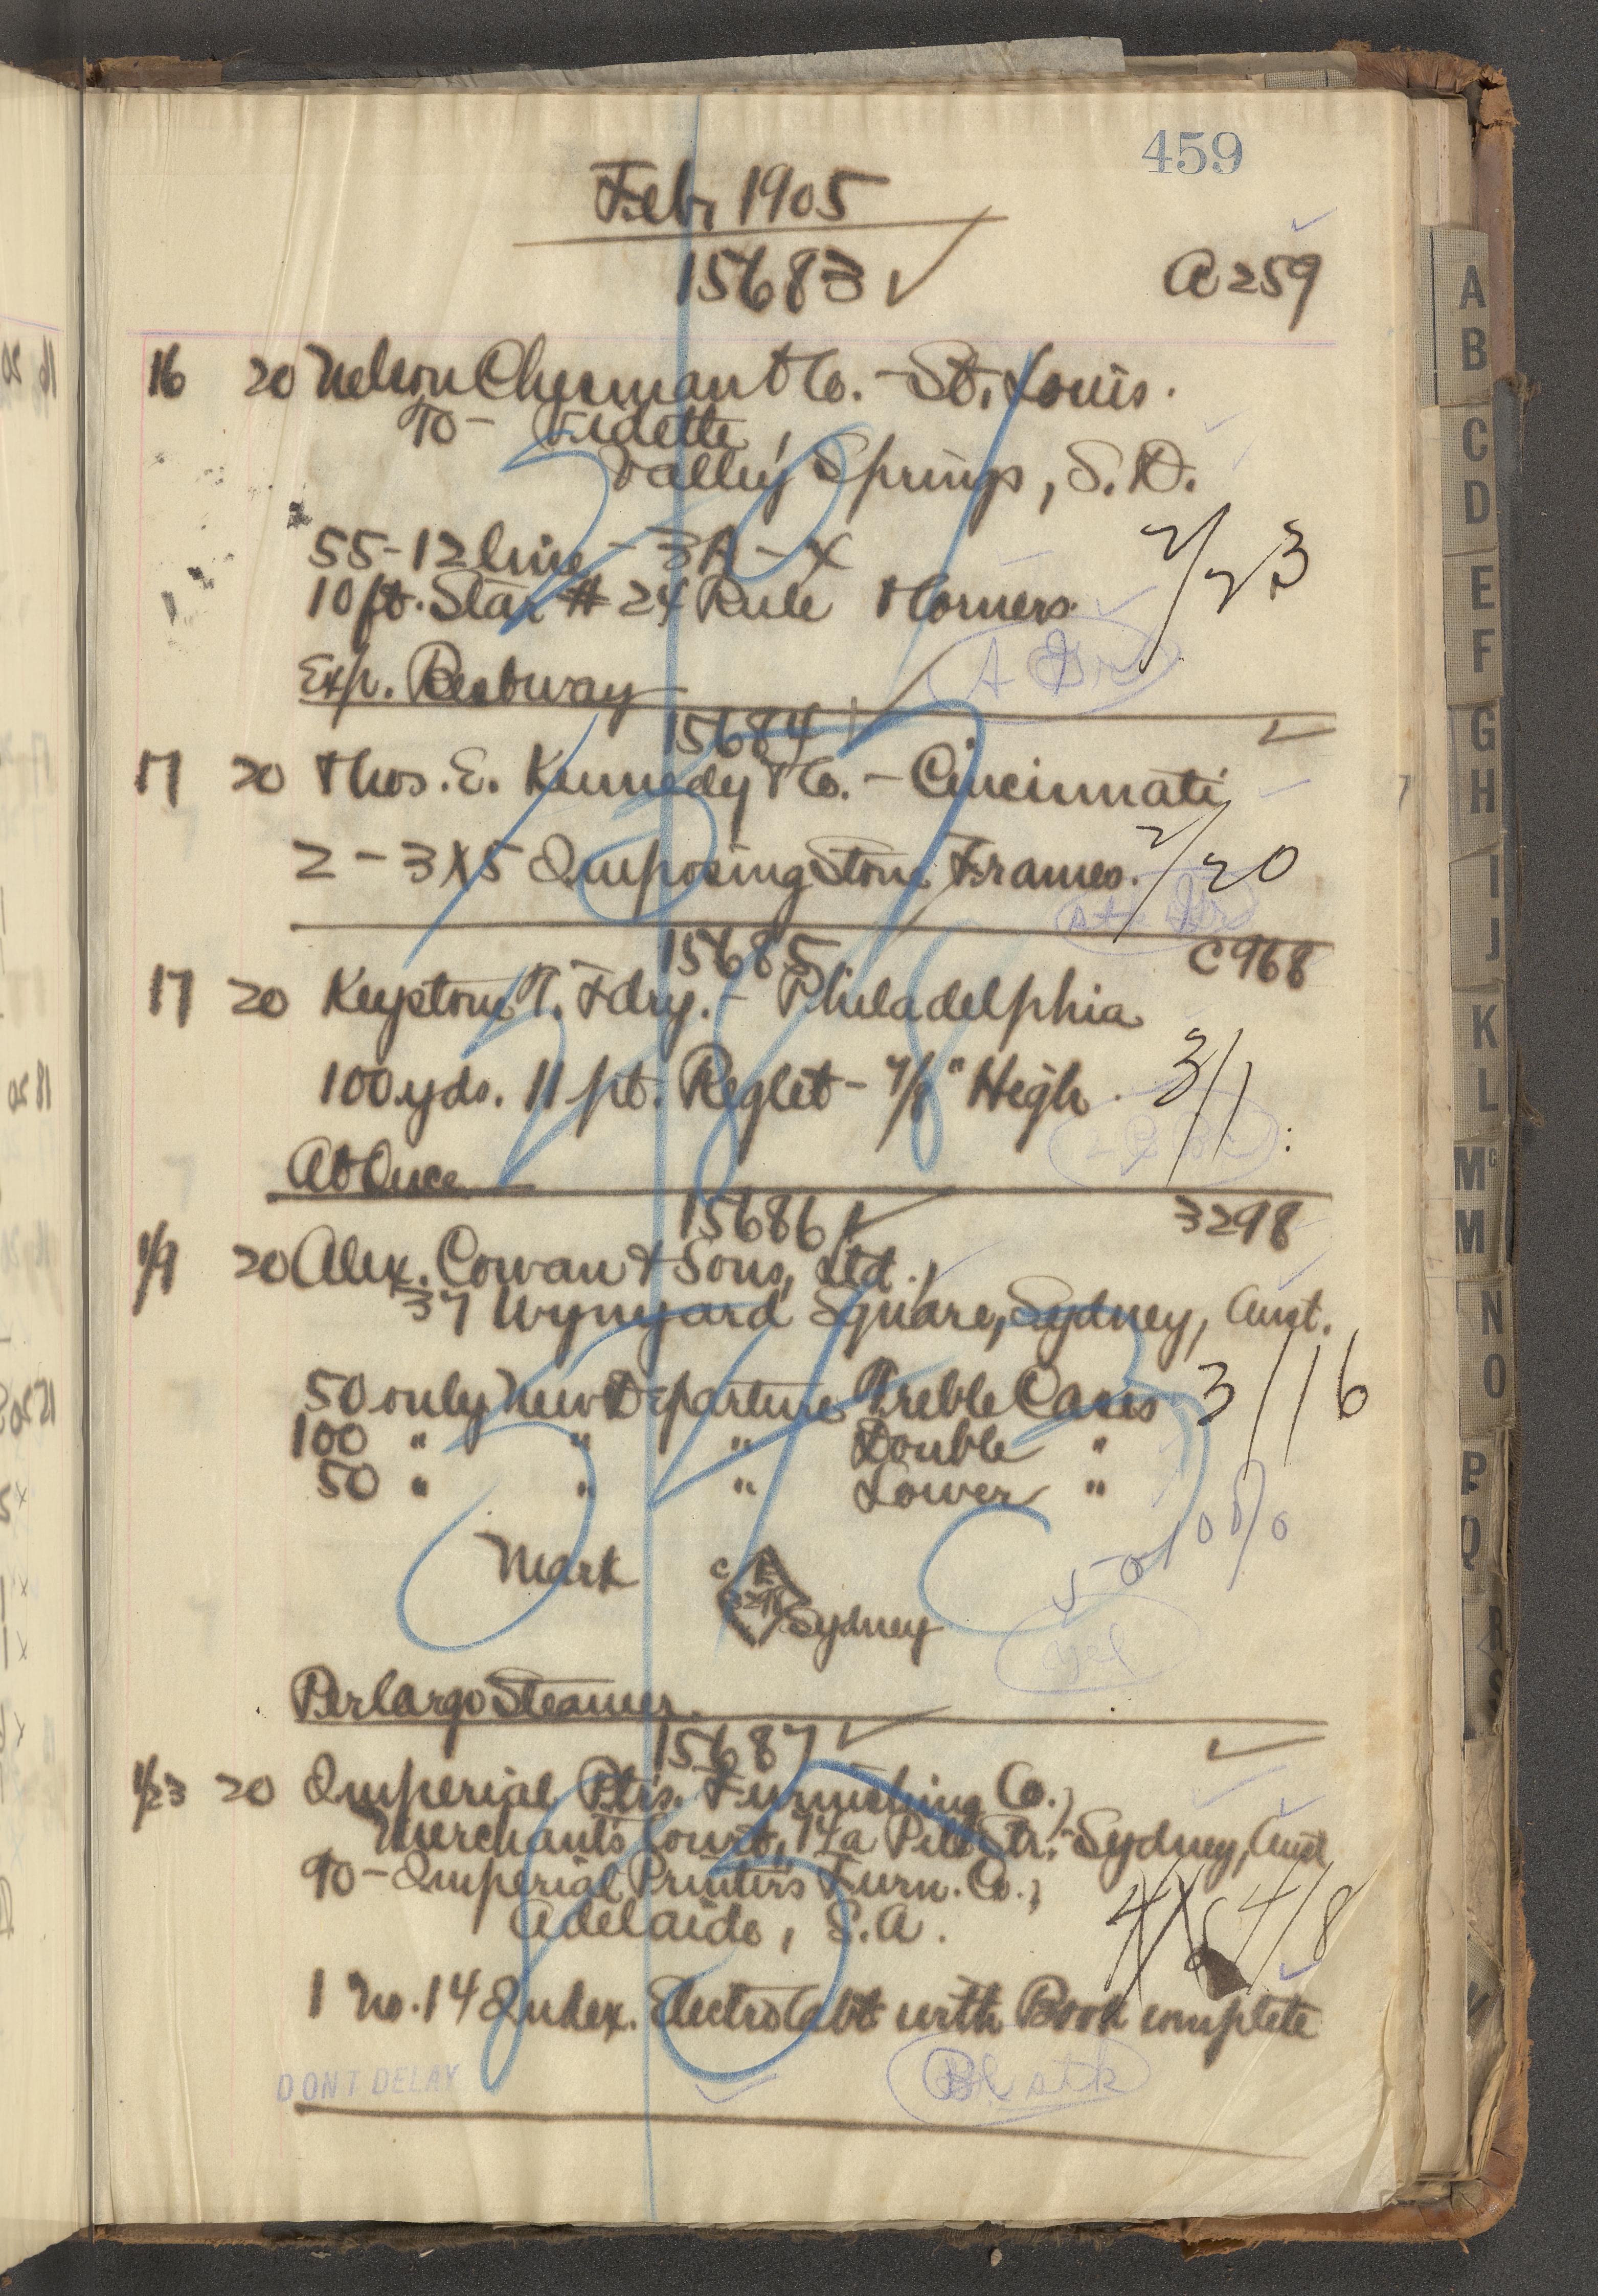 459
Feb, 1905
15683 ✓ A259
16 20 Nelson Chesman & Co. - St. Louis.
To - Vidette,
Valley Springs, S.D.
55-12 line - 3A - X 2/23
10 ft. Star # 24 Rule & Corners.
Exp. Bestway
15684
17 20 Thos. E. Kennedy & Co. - Cincinnati
2 - 3X5 Imposing Stone Frames. 2/20
15685 C968
17 20 Keystone T. Fdry. - Philadelphia
100 yds. 11 pt. Reglet - 7/8" High. 3/1
At Once
15686 ✓ 3298
1/9 20 Alex. Cowan & Sons, Ltd.,
37 Wynyard Square, Sydney, Aust.
50 only New Departure Treble Cases 3/16
100 " " " Double "
50 " " " Lower "
Mark
3298
Sydney
Per Cargo Steamer.
15687 ✓
1/23 20 Imperial Ptrs. Furnishing Co.,
Merchants Court, 14a Pitt Str. - Sydney, Aust
To - Imperial Printers Furn. Co.,
Adelaide, S.A. 4/8
1 No. 14 Index. Electro Cabt with Book complete
Bl stk
DONT DELAY
A
B
C
D
E
F
G
H
I
J
K
L
Mc
M
N
O
P
Q
R